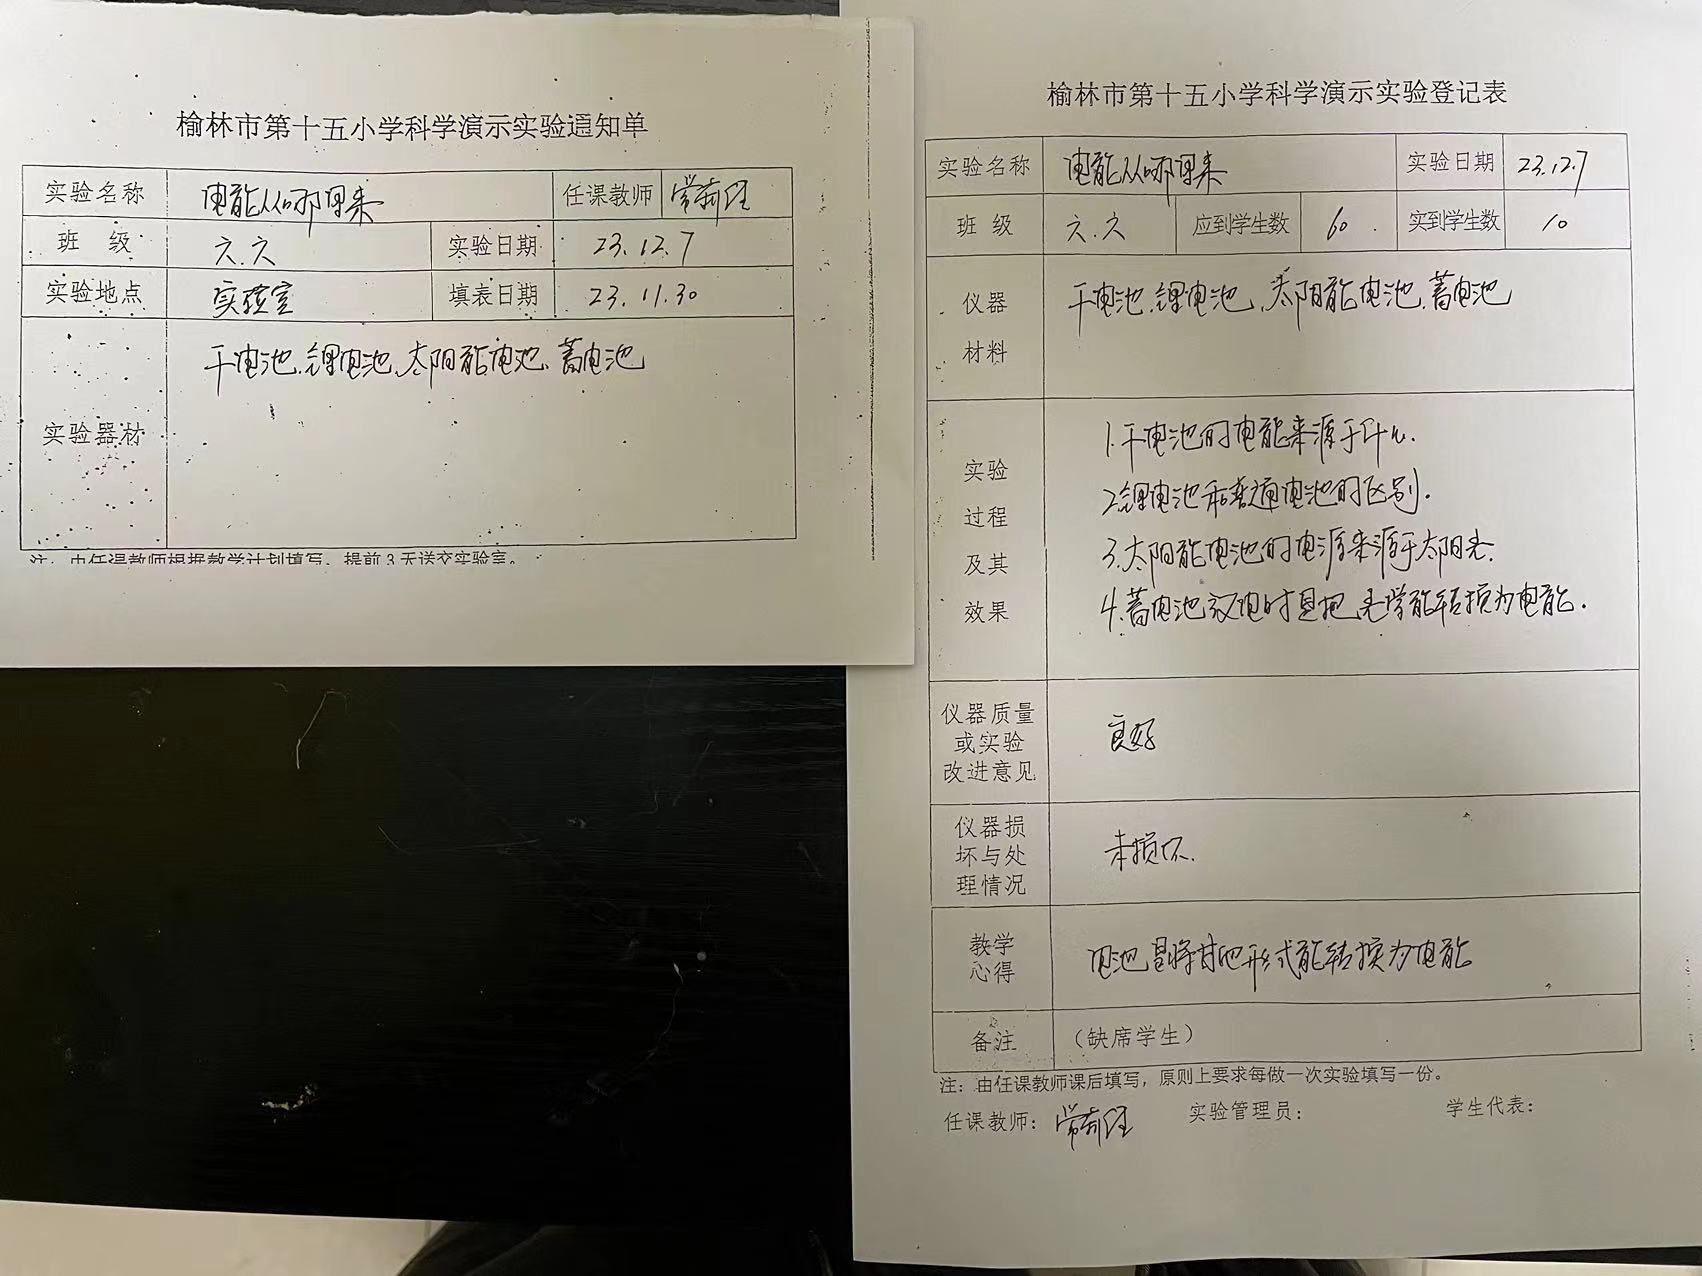 榆林市第十五小学科学演示实验通知单
实验名称 电能从哪里来 任课教师
班 级 六.六 实验日期 23.12.7
实验地点 实验室 填表日期 23.11.30
实验器材 干电池.锂电池、太阳能电池、蓄电池
注：由任课教师根据教学计划填写，提前3天送交实验室。
榆林市第十五小学科学演示实验登记表
实验名称 电能从哪里来 实验日期 23.12.7
班 级 六.六 应到学生数 60 实到学生数
仪器
材料
干电池.锂电池、太阳能电池、蓄电池
实验
过程
及其
效果
1.干电池的电能来源于什么.
2.锂电池和普通电池的区别.
3.太阳能电池的电源来源于太阳光.
4.蓄电池放电时是把化学能转换为电能.
仪器质量
或实验
改进意见
良好
仪器损
坏与处
理情况
未损坏.
教学
心得
电池是将其他形式能转换为电能
备注 （缺席学生）
注：由任课教师课后填写，原则上要求每做一次实验填写一份。
任课教师： 实验管理员： 学生代表：